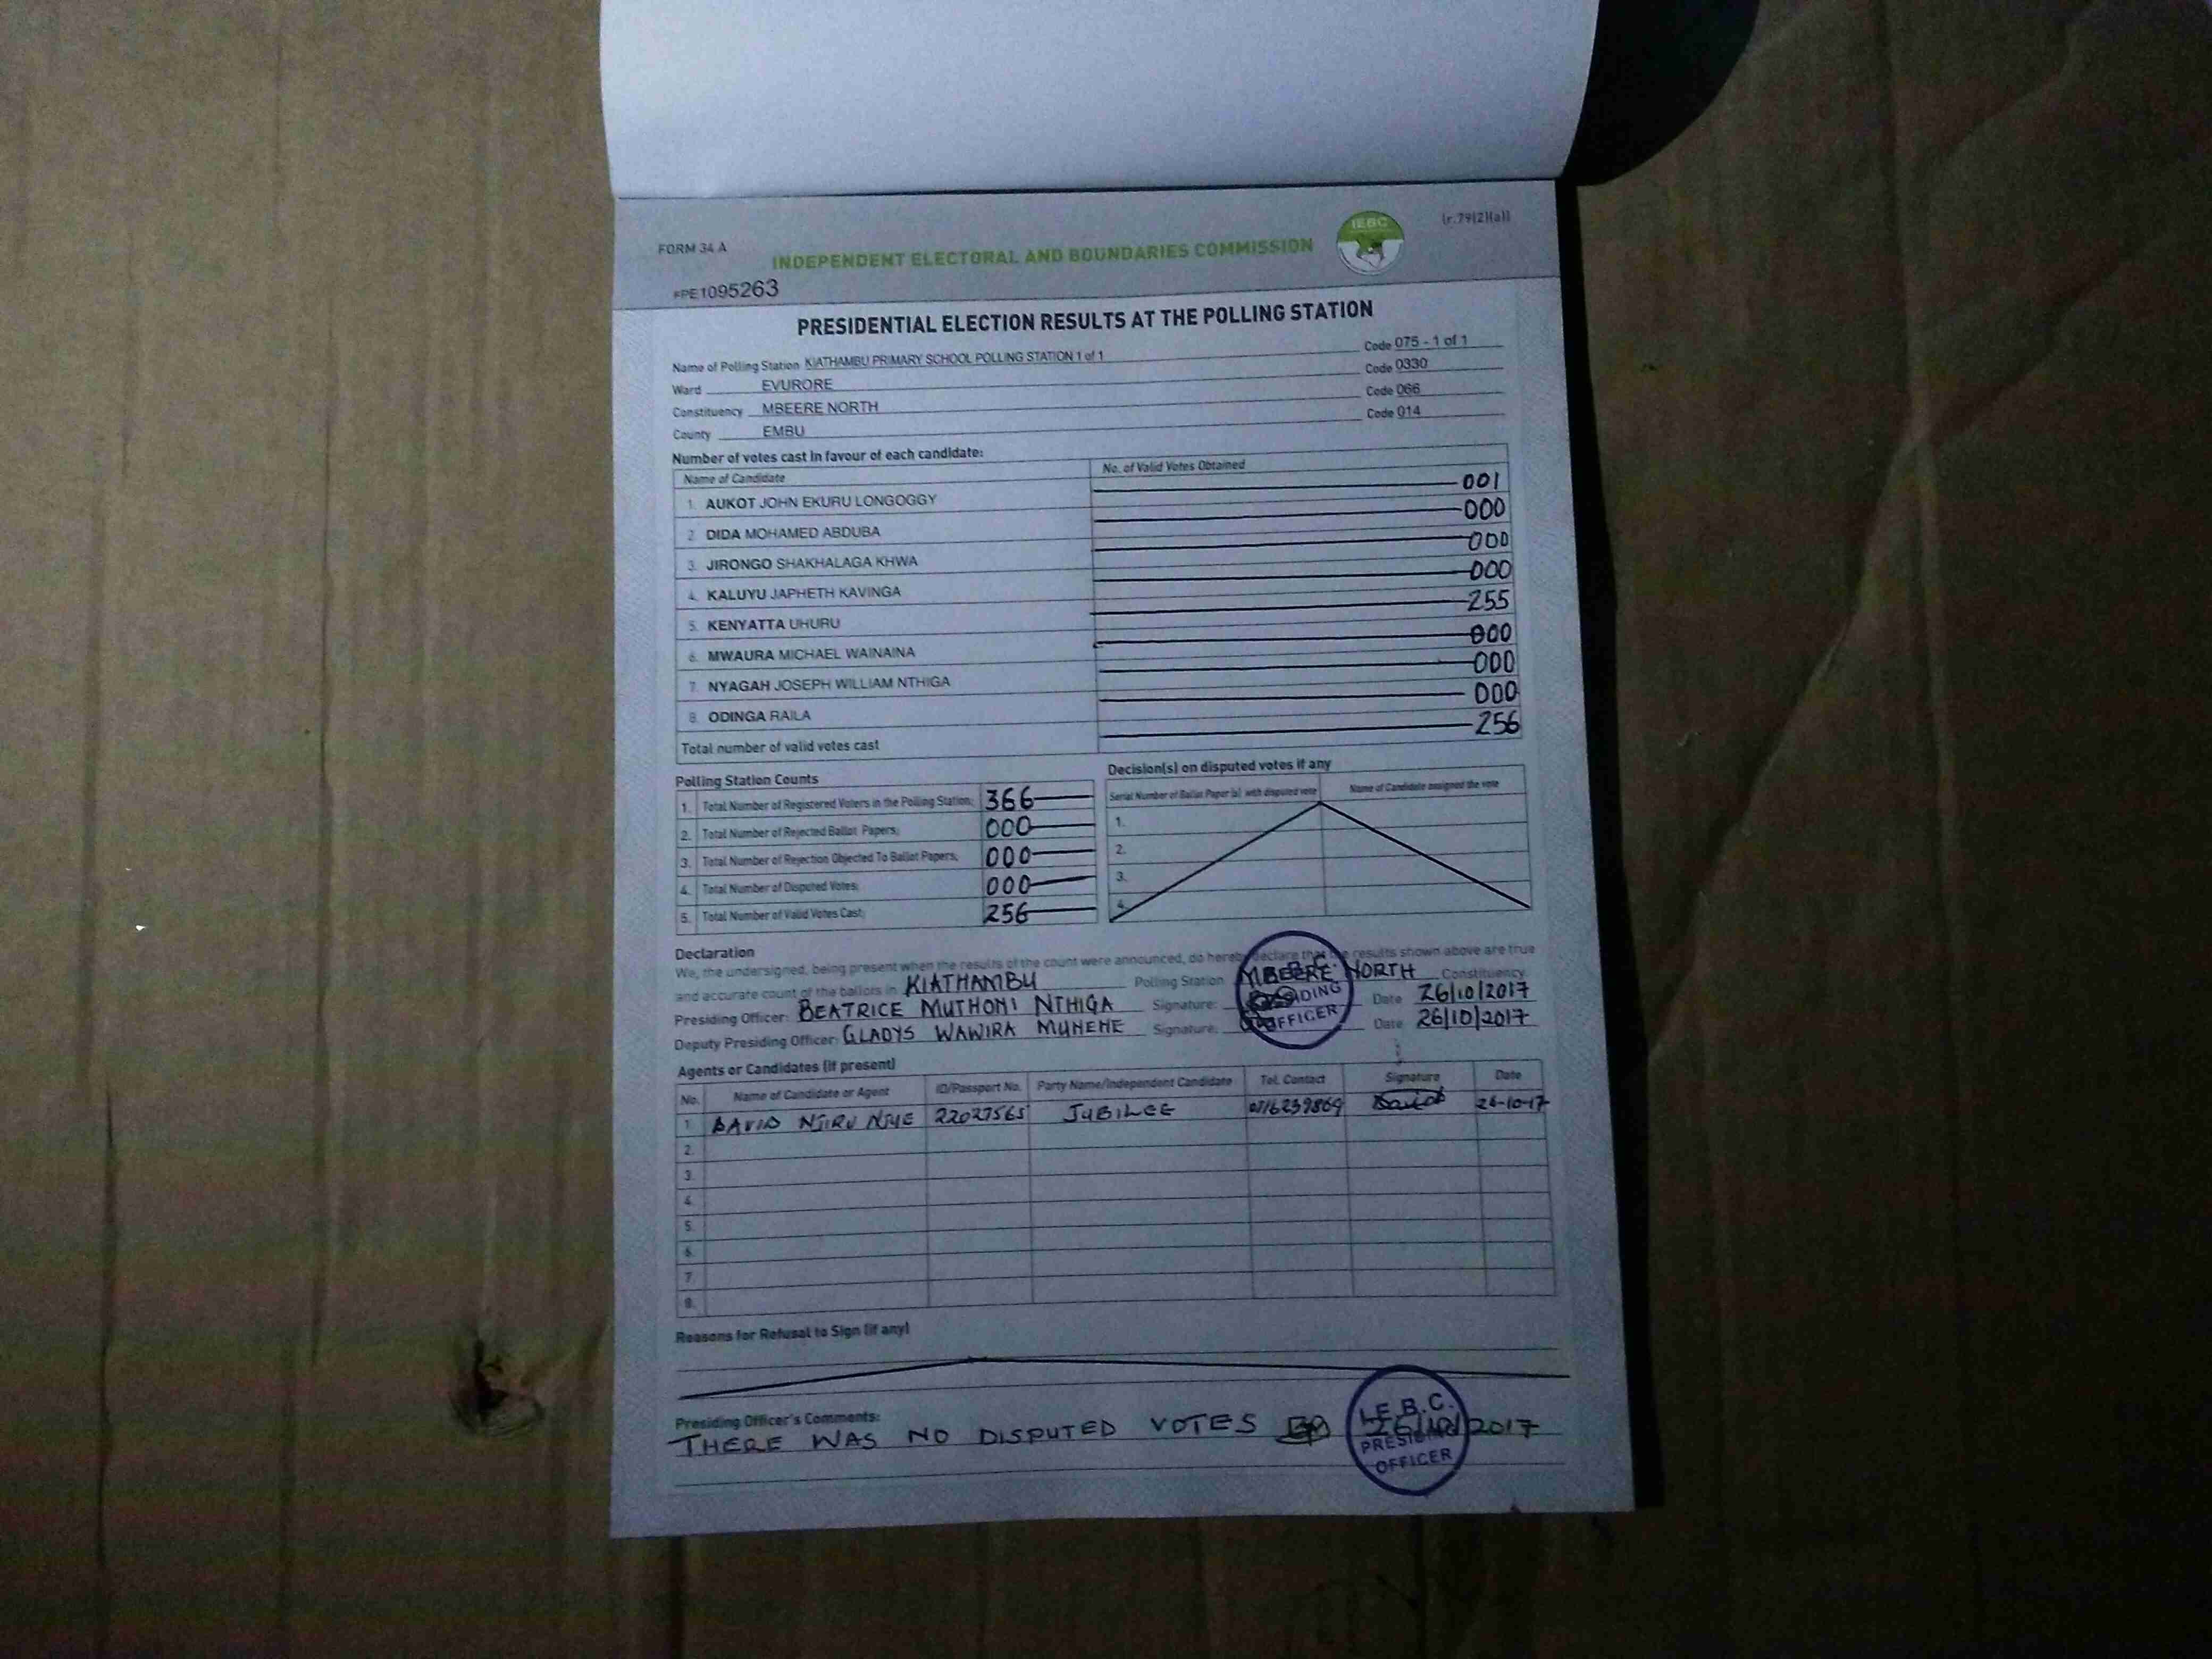 FORM 34 A
(r.79(2)(a))
IEBC
INDEPENDENT ELECTORAL AND BOUNDARIES COMMISSION
#PE1095263
PRESIDENTIAL ELECTION RESULTS AT THE POLLING STATION
Name of Polling Station KIATHAMBU PRIMARY SCHOOL POLLING STATION 1 of 1 Code 075 - 1 of 1
Ward EVURORE Code 0330
Constituency MBEERE NORTH Code 066
County EMBU Code 014
Number of votes cast in favour of each candidate:
Name of Candidate No. of Valid Votes Obtained
1. AUKOT JOHN EKURU LONGOGGY 001
2. DIDA MOHAMED ABDUBA 000
3. JIRONGO SHAKHALAGA KHWA 000
4. KALUYU JAPHETH KAVINGA 000
5. KENYATTA UHURU 255
6. MWAURA MICHAEL WAINAINA 000
7. NYAGAH JOSEPH WILLIAM NTHIGA 000
8. ODINGA RAILA 000
Total number of valid votes cast 256
Polling Station Counts
1. Total Number of Registered Voters in the Polling Station; 366
2. Total Number of Rejected Ballot Papers; 000
3. Total Number of Rejection Objected To Ballot Papers; 000
4. Total Number of Disputed Votes; 000
5. Total Number of Valid Votes Cast; 256
Decision(s) on disputed votes if any
Serial Number of Ballot Paper (s) with disputed vote Name of Candidate assigned the vote
1.
2.
3.
4.
Declaration
We, the undersigned, being present when the results of the count were announced, do hereby declare that the results shown above are true
and accurate count of the ballots in KIATHAMBU Polling Station MBEERE NORTH Constituency
Presiding Officer: BEATRICE MUTHONI NTHIGA Signature: Date 26/10/2017
Deputy Presiding Officer: GLADYS WAWIRA MUNENE Signature: Date 26/10/2017
PRESIDING
OFFICER
Agents or Candidates (if present)
No. Name of Candidate or Agent ID/Passport No. Party Name/Independent Candidate Tel. Contact Signature Date
1 DAVID NJIRU NJUE 22027565 JUBILEE 0716239869 David 26-10-17
2.
3.
4.
5.
6.
7.
8.
Reasons for Refusal to Sign (if any)
Presiding Officer's Comments:
THERE WAS NO DISPUTED VOTES 26/10/2017
I.E.B.C.
PRESIDING
OFFICER